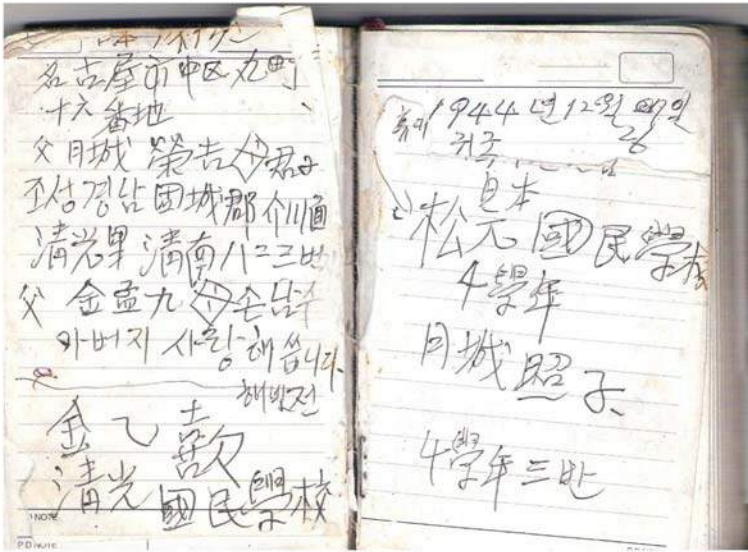 名古屋市中区丸町
十六番地
父 月城 榮吉 母 君子
조성경남 固城郡 介川面
淸光里 淸南 1223번
父 金孟九 母 손남수
아버지 사랑해씁니다
해방전
金乙
淸光 國民學校
NOTE
1944년 12월
귀국
日本
松元國民學校
4學年
月城照子
4學年三반